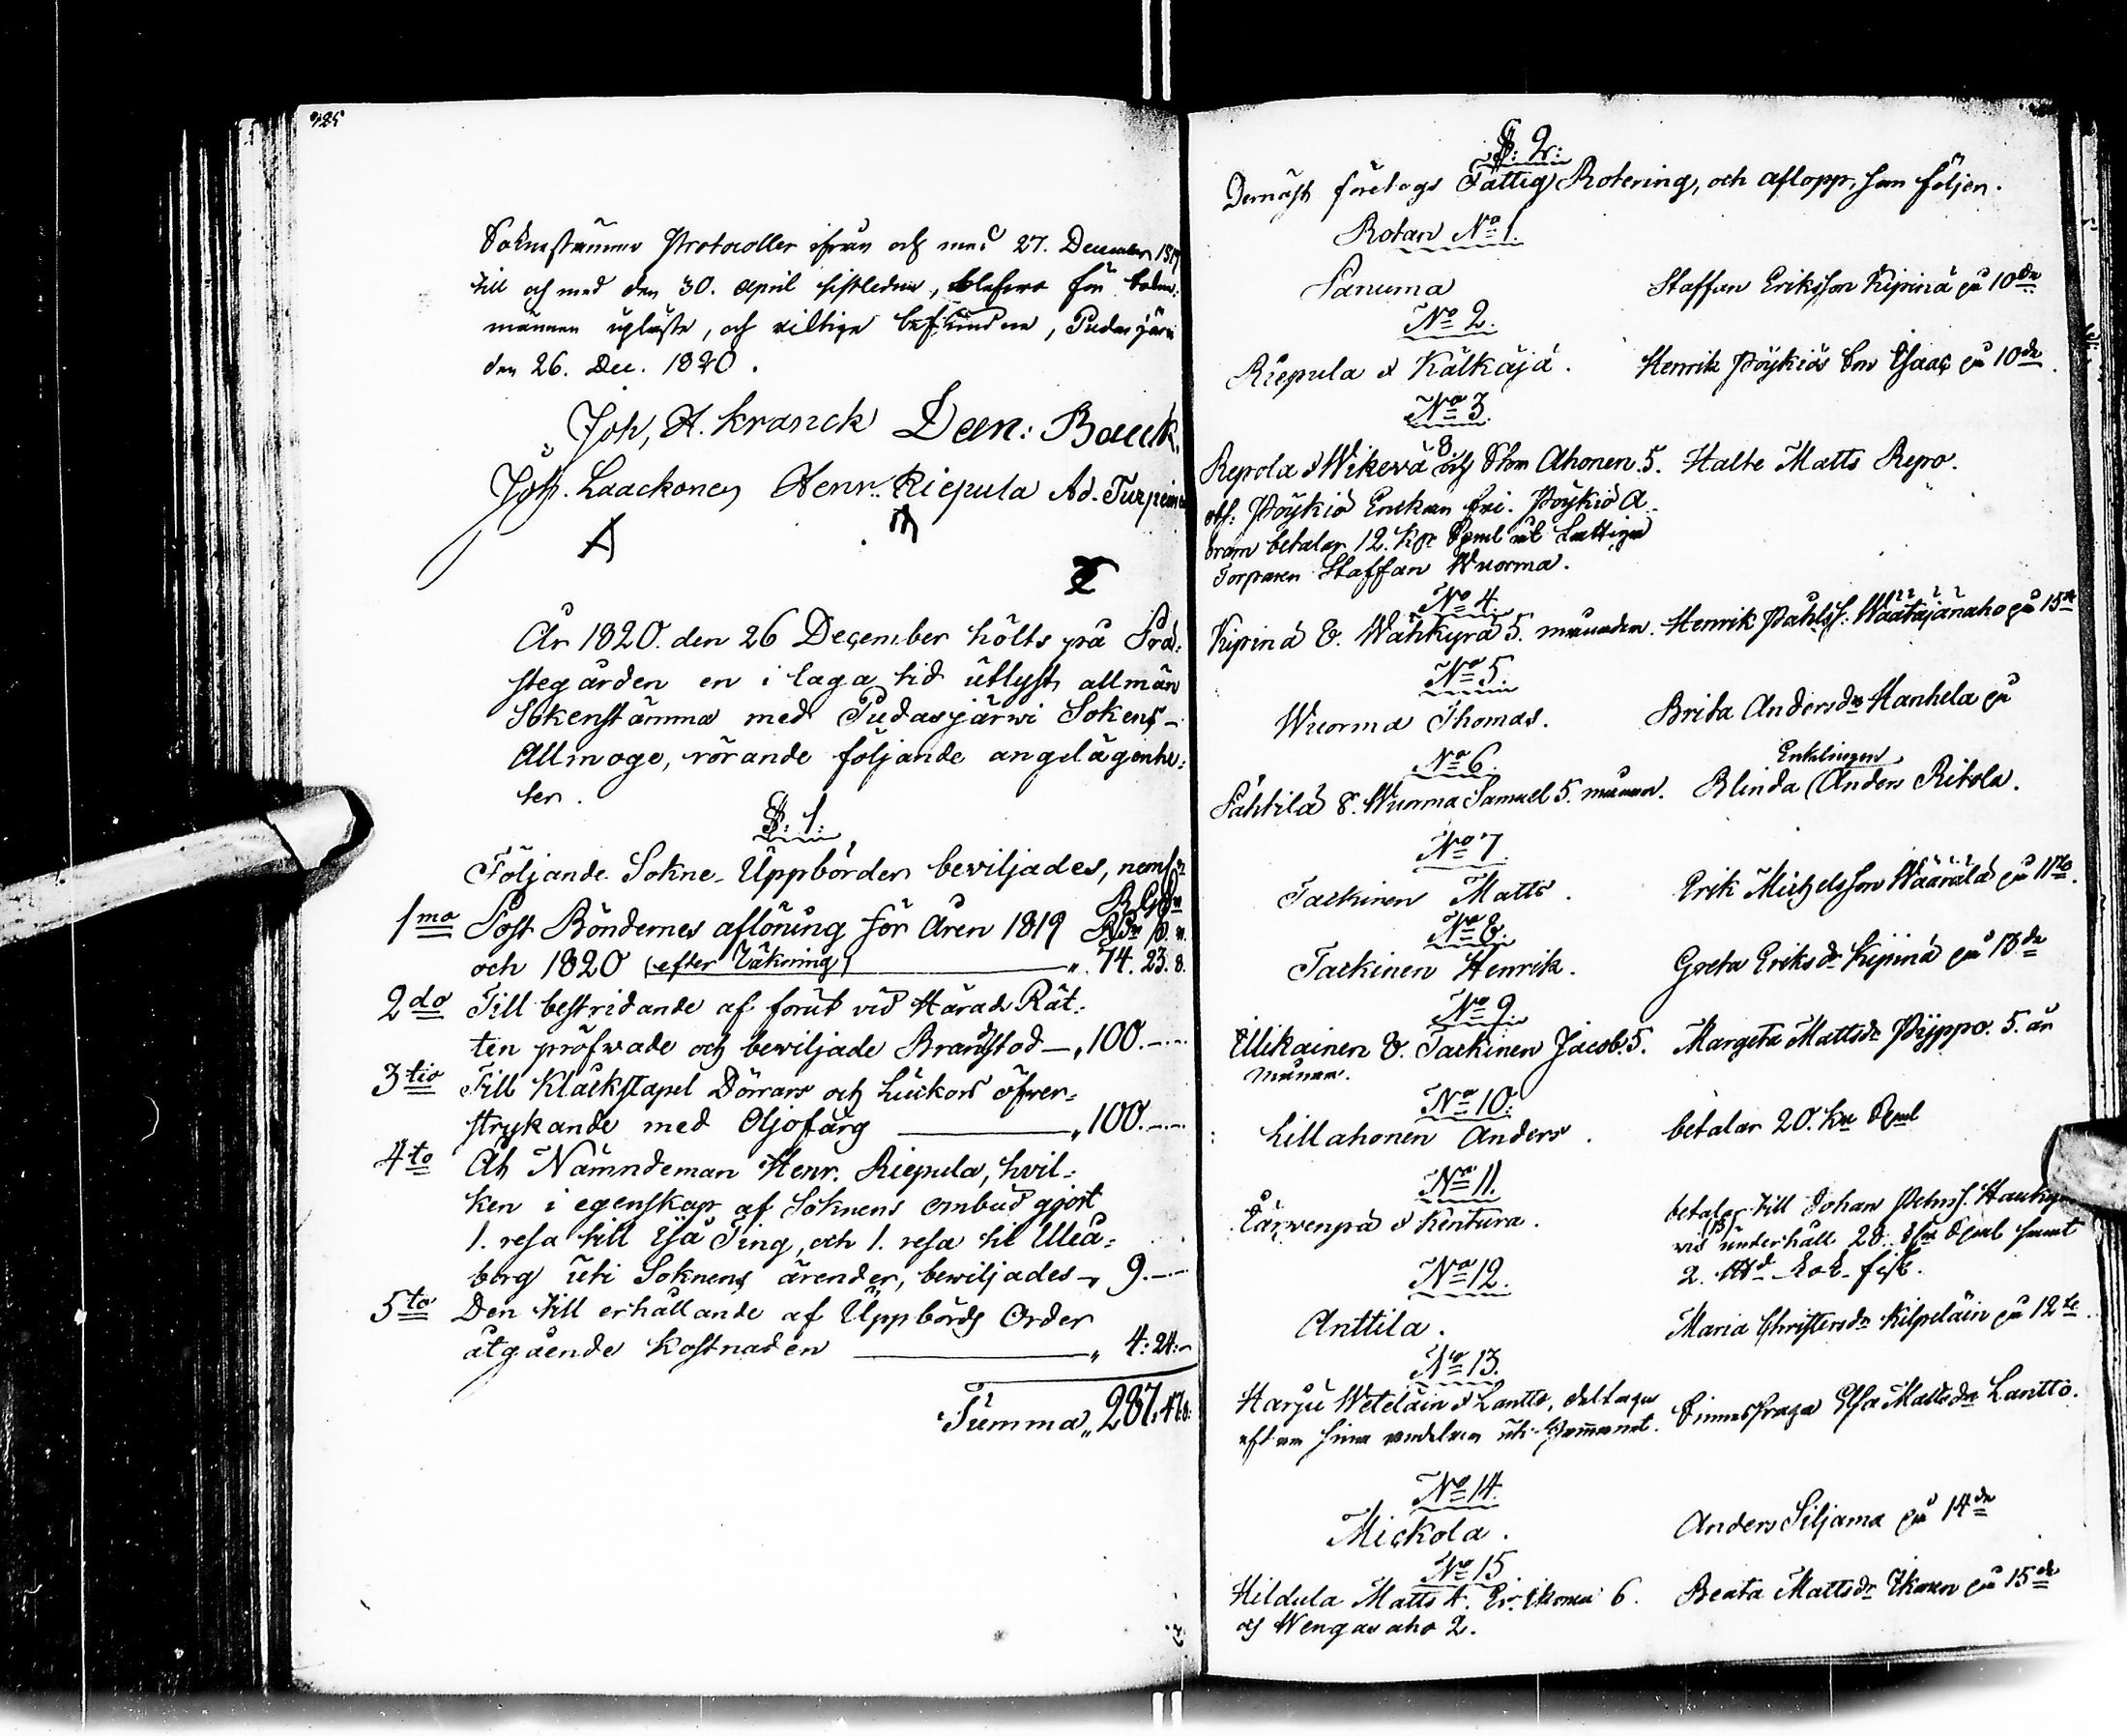 Soknestämmo Protocoller ifrån och med 27. December 1819
till och med den 30. April sistledne, blefwo för Sokne-
männen upläste, och riktige befundne, Pudasjärvi
den 26. Dec. 1820.
Joh. A. Kranck Dan: Bäck
Joh. Laackonen Henr. Riepula Ad. Turpeinen
År 1820. den 26 December hölts på Prä:
stegården en i laga tid utlyst allmän
Sokenstämma med Pudasjärwi Sokens-
Allmoge, rörande följande angelägenhe:
ter.
§: 1:
Följande Sokne-Uppbörder beviljades, neml:n
1mo Post Böndernes aflöning för Åren 1819
och 1820 (efter Räkning) „ 74. 23. 8.
2do Till bestridande af förut vid Härads Rät:
ten pröfwade och bewiljade Brandstod „ 100.
3tio Till Klåckstapel Dörrars och Luckors öfwer-
strykande med Oljofärg „ 100.
4to Åt Nämndeman Henr. Riepula, hvil:
ken i egenskap af Soknens ombud gjort
1. resa till Ijå Ting, och 1. resa til Uleå:
borg uti Soknens ärender, bewiljades 9.
5to Den till erhållande af Uppbörds Order
utgående kostnaden „ 4: 24:
Summa „ 287. 47. 8.
§: 2:
Dernäst företogs Fattig Rotering, och aflopp, som följer.
Rotan No 1.
Sanuma Staffan Eriksson Kipinä på 10de
No 2.
Riepula & Kälkäjä. Henrik Pöykiös Son Isaac på 10de
No 3.
Repola & Wikewä 8 och Ahonen. 5. Halte Matts Repo.
Pöykiö Enskan Eri. Pöykiö A
betalar 12. Kpr til fattige
Torparen Staffan Wuorma.
No 4.
Kipinä &. Wähkyrä 5. månader. Henrik Pahlss: Wäätäjänaho på 15de
No 5.
Wuorma Thomas. Brita Andersdr Hanhela på
No 6.
Sähtilä &. Wuorma Samuel 5. månan. Blinda Enklingen Anders Ritola.
No 7
Tackinen Matts. Erik Michelsson Määrälä på 11te.
No 8.
Tackinen Henrik. Greta Eriksdr Kipinä på 13de
No 9.
Ullikainen &. Tackinen Jacob. 5. Margeta Mattsdr Pyppo. 5. år
månan.
No 10.
Lillahonen Anders. betalar 20. Kpr
No 11.
Tärwenpä & Kentura. betaler till Johan
vid underhåll 28. samt
2. fisk.
No 12.
Anttila. Maria Christersdr Kilpeläin på 12te.
No 13.
Harju Weteläin & Lantto, deltager Sinnessvaga Elsa Mattsdr Lantto.
efter sina andelar uti Hemmanet.
No 14.
Mickola. Anders Siljama på 14de
No 15.
Hildula Matts 4. Er. Ikonen 6. Beata Mattsdr Ikonen på 15de
och Wengasaho 2.